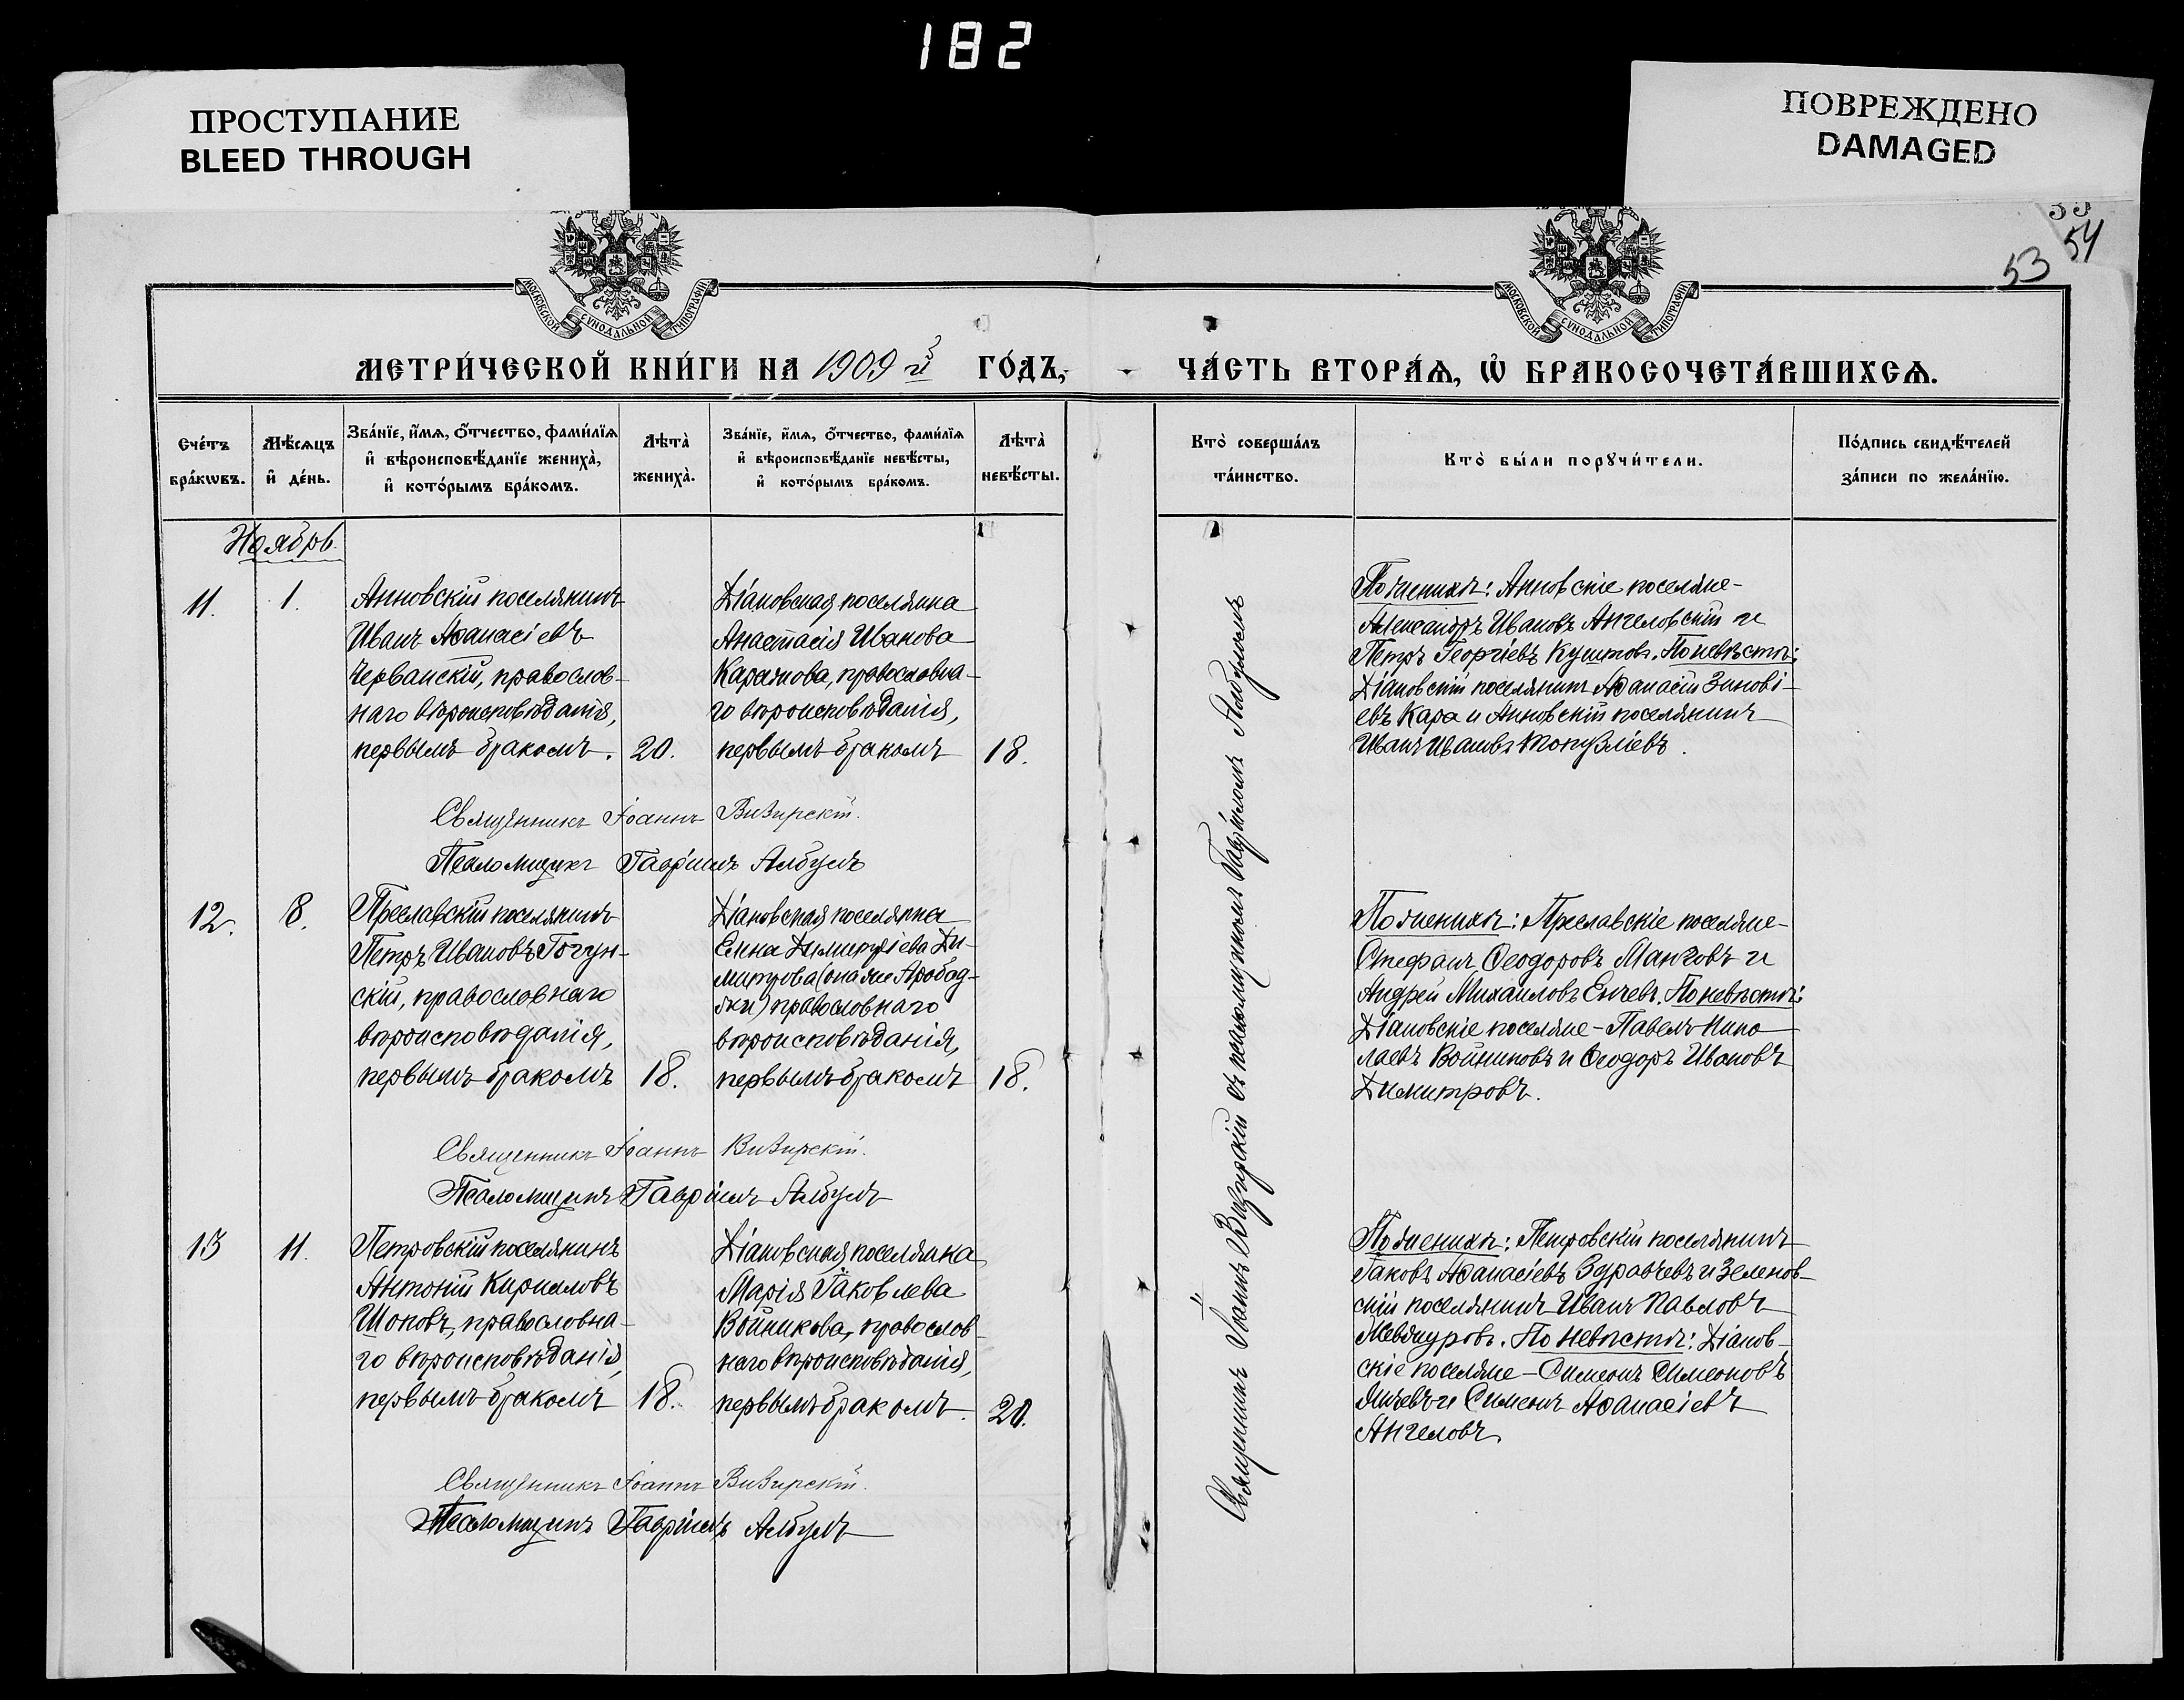 182
ПРОСТУПАНИЕ
BLEED THROUGH
ПОВРЕЖДЕНО
DAMAGED
53 54
МОСКОВСКОЙ СУНОДАЛЬНОЙ ТИПОГРАФІИ
МОСКОВСКОЙ СУНОДАЛЬНОЙ ТИПОГРАФІИ
МЕТРИ́ЧЕСКОЙ КНИ́ГИ НА 1909й ГО́ДЪ,
ЧА́СТЬ ВТОРА́Ѧ, Ѡ҆ БРАКОСОЧЕТА́ВШИХСѦ.
Сче́тъ бра́кѡвъ.
Мѣ́сѧцъ и҆ де́нь.
Зва́нїе, и҆́мѧ, ѻ҆́тчество, фами́лїѧ и҆ вѣроисповѣ́данїе жениха̀, и҆ кото́рымъ бра́комъ.
Лѣта̀ жениха̀.
Зва́нїе, и҆́мѧ, ѻ҆́тчество, фами́лїѧ и҆ вѣроисповѣ́данїе невѣ́сты, и҆ кото́рымъ бра́комъ.
Лѣта̀ невѣ́сты.
Кто̀ соверша́лъ та́инство.
Кто̀ бы́ли порꙋчи́тели.
По́дпись свидѣ́телей за́писи по жела́нїю.
Ноябрь
11. 1.
Анновскій поселянинъ
Иванъ Аѳанасіевъ
Черванскій, православ-
наго вѣроисповѣданія,
первымъ бракомъ. 20.
Діановская поселянка
Анастасія Иванова
православна-
го вѣроисповѣданія,
первымъ бракомъ 18.
По женихѣ: Анновскіе поселяне-
Александръ Ивановъ Ангеловскій и
Петръ Георгіевъ Куштовъ. По невѣстѣ:
Діановскій поселянинъ Аѳанасій Зинові-
евъ Кара и Анновскій поселянинъ
Иванъ Ивановъ Топузліевъ.
Священникъ Іоаннъ Визирскій.
Псаломщикъ Гавріилъ Албулъ
12. 8.
Преславскій поселянинъ
Петръ Ивановъ Гогун-
скій, православнаго
вѣроисповѣданія,
первымъ бракомъ 18.
Діановская поселянка
Елена Димитріева Ди-
митрова (она же
православнаго
вѣроисповѣданія,
первымъ бракомъ 18.
По женихѣ: Преславскіе поселяне-
Стефанъ Ѳеодоровъ Манговъ и
Андрей Михаиловъ Енчевъ. По невѣстѣ:
Діановскіе поселяне - Павелъ Нико
лаевъ Войниковъ и Ѳеодоръ Ивановъ
Димитровъ.
Священникъ Іоаннъ Визирскій.
Псаломщикъ Гавріилъ Албулъ
13 11.
Петровскій поселянинъ
Антоній Кирилловъ
Шоповъ, православна-
го вѣроисповѣданія,
первымъ бракомъ 18.
Діановская поселянка
Марія Іаковлева
Войникова, православ-
наго вѣроисповѣданія,
первымъ бракомъ. 20.
По женихѣ: Петровскій поселянинъ
Іаковъ Аѳанасіевъ Здравчевъ и Зеленов-
скій поселянинъ Иванъ Павловъ
По невѣстѣ: Діанов-
скіе поселяне - Симеонъ Симеоновъ
Янчевъ и Симеонъ Аѳанасіевъ
Ангеловъ.
Священникъ Іоаннъ Визирскій.
Псаломщикъ Гавріилъ Албулъ
Священникъ Іоаннъ Визирскій съ псаломщикомъ Гавріиломъ Албуломъ